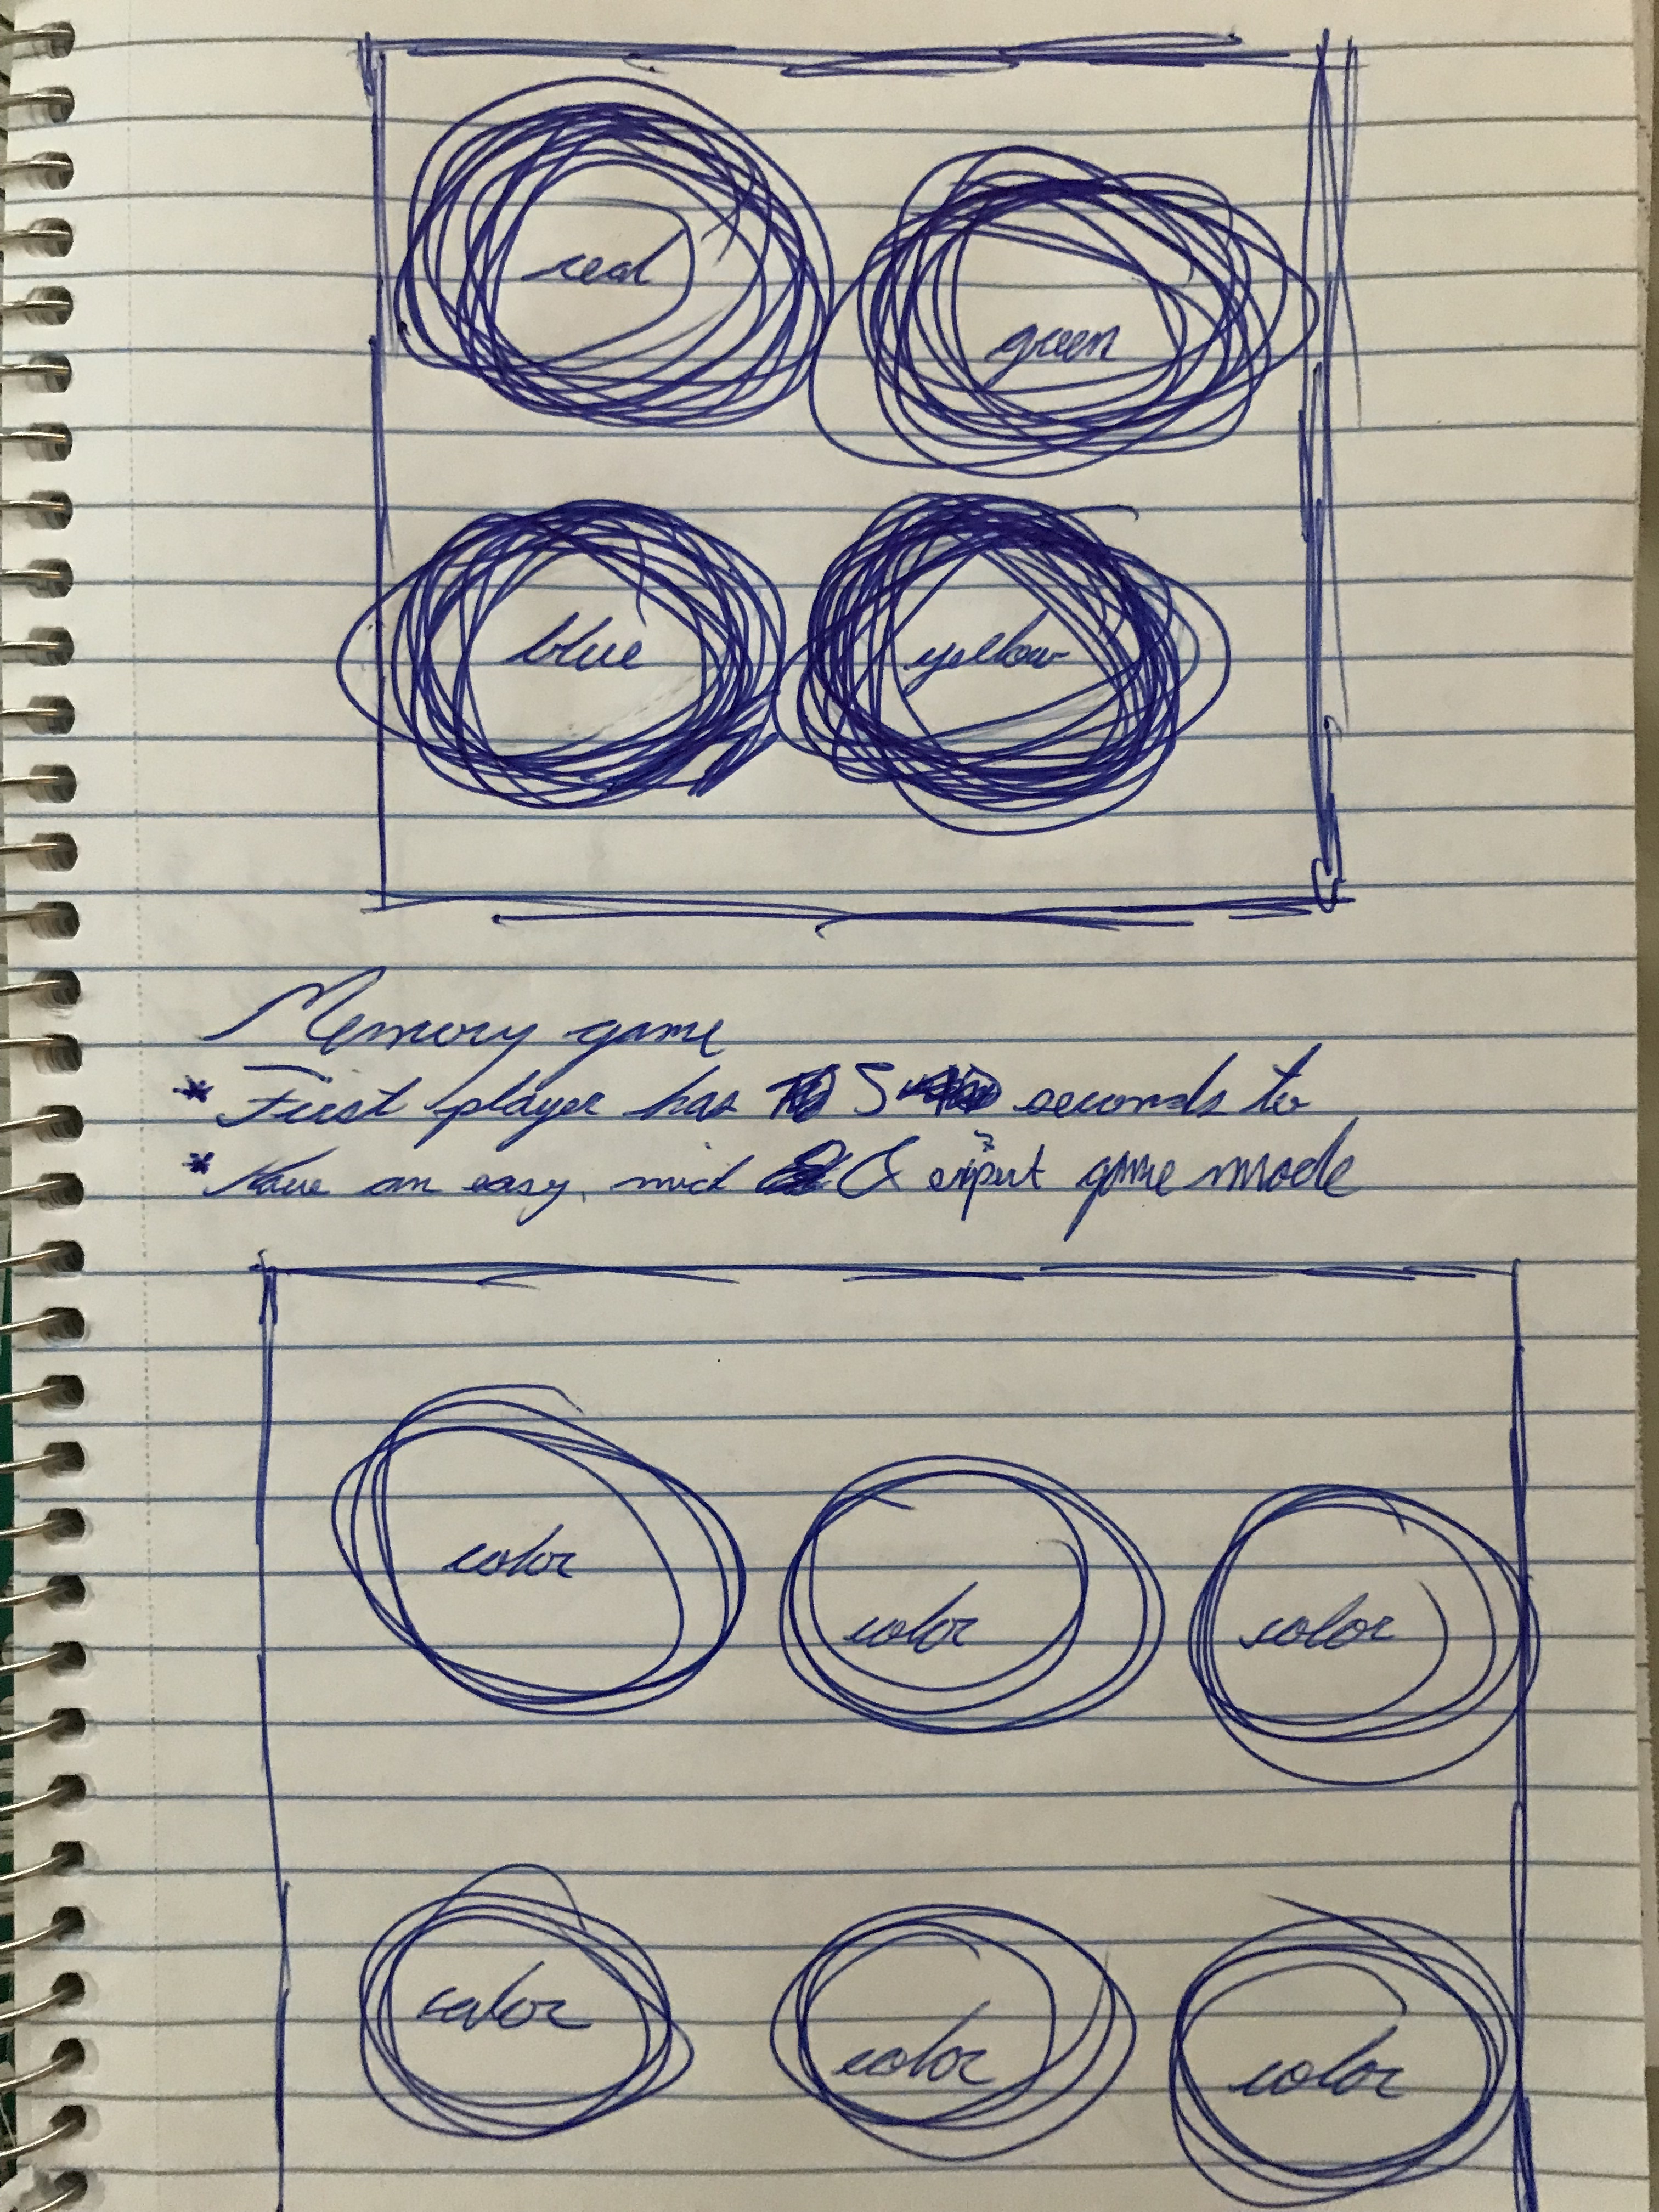 red
green
blue
yellow
Memory game
* First player has 5 seconds to
* Have an easy, mid & expert game mode
color
color
color
color
color
color